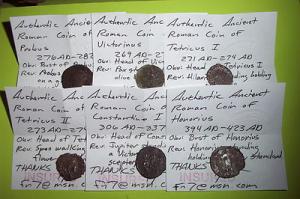 Authentic Anc
Roman Coin of
Probus
276AD-282
Obv: Bust of
Rev: Probus
on a
Authentic Anc
Roman Coin of
Victorinus
269 AD-27
Obv: Head of Vic
Rev:
Authentic Ancient
Roman Coin of
Tetricus I
271 AD-274 AD
Obv: Head of Tetricus I
Rev: holding
Authentic Anc
Roman Coin of
Tetricus II
273 AD-27
Obv: Head of Te
Rev: Spes walking
flower
THANKS
fn7@msn.com
Authentic Anc
Roman Coin of
Constantine I
306 AD-337
Obv: Head of Con
Rev: Jupiter stands
a Victor
scepter
THANKS
fn7@msn.com
Authentic Ancient
Roman Coin of
Honorius
394 AD-423 AD
Obv: Bust of Honorius
Rev: Honorius standing
holding standard
THANKS
fn7@msn.com